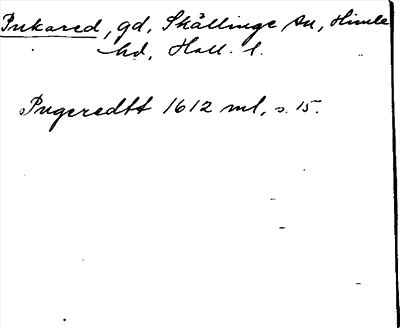 Pukared, gd, Skällinge sn, Himle
hd, Hall. l.
Pugeredtt 1612 ml, s. 15.